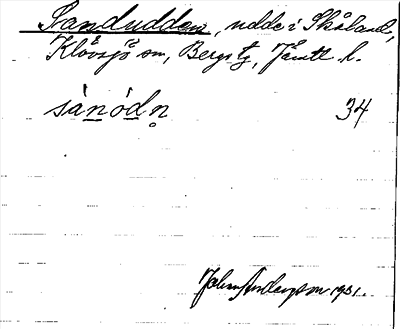 Sandudden, udde i Skåland,
Klövsjö sn, Bergs tg, Jämtl. l.
sànòdn̥ 34
John Anderson 1931.